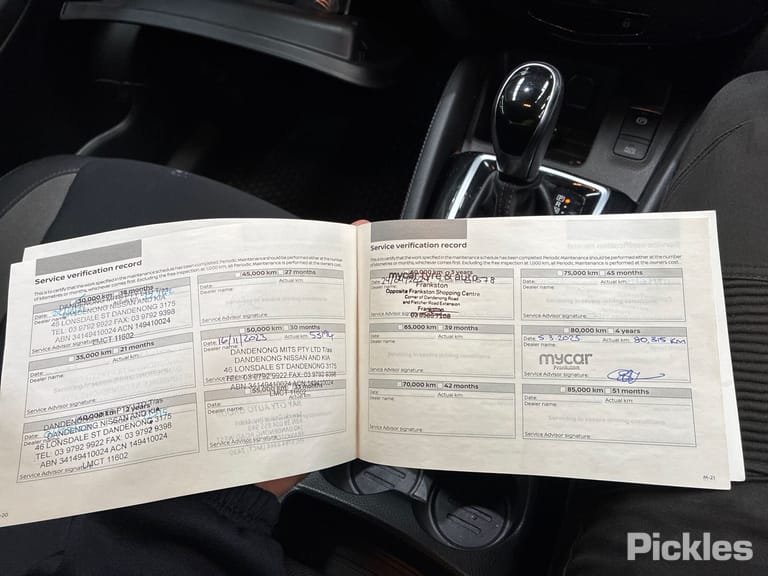 Service verification record
This is to certify that the work specified in the maintenance schedule has been completed. Periodic Maintenance should be performed either at the number
of kilometres or months, whichever comes first. Excluding the free inspection at 1,000 km, all Periodic Maintenance is performed at the owners cost.
30,000 km
18 months
Date:
Dealer name:
DANDENONG NISSAN AND KIA
46 LONSDALE ST DANDENONG 3175
TEL: 03 9792 9922 FAX: 03 9792 9398
ABN 34149410024 ACN 149410024
LMCT 11602
Service Advisor signature:
35,000 km 21 months
Date:
Actual km:
Dealer name:
Service Advisor signature:
40,000 km 2 years
Date:
DANDENONG MITS PTY LTD Tras
DANDENONG NISSAN AND KIA
46 LONSDALE ST DANDENONG 3175
TEL: 03 9792 9922 FAX: 03 9792 9398
ABN 34149410024 ACN 149410024
LMCT 11602
Service Advisor signature:
45,000 km 27 months
Date:
Actual km:
Dealer name:
Service Advisor signature:
50,000 km 30 months
Date: 16/11/2023
Actual km:
Dealer name:
DANDENONG MITS PTY LTD Tras
DANDENONG NISSAN AND KIA
46 LONSDALE ST DANDENONG 3175
TEL: 03 9792 9922 FAX: 03 9792 9398
ABN 34149410024 ACN 149410024
LMCT 11602
55,000 km 33 months
Date:
Dealer name:
Service Advisor signature:
Service verification record
This is to certify that the work specified in the maintenance schedule has been completed. Periodic Maintenance should be performed either at the number
of kilometres or months, whichever comes first. Excluding the free inspection at 1,000 km, all Periodic Maintenance is performed at the owners cost.
60,000 km 3 years
Date:
mycar tyre & auto
Frankston
Opposite Frankston Shopping Centre
Corner of Dandenong Road
and Fletcher Road Extension
Frankston
Service Advisor signature:
65,000 km 39 months
Date:
Actual km:
Dealer name:
Service Advisor signature:
70,000 km 42 months
Date:
Actual km:
Dealer name:
Service Advisor signature:
75,000 km 45 months
Date:
Actual km:
Dealer name:
Service Advisor signature:
80,000 km 4 years
Date: 5.3.2025
Actual km: 80,315 km
Dealer name:
mycar
Frankston
Service Advisor signature:
85,000 km 51 months
Date:
Actual km:
Dealer name:
Service Advisor signature:
M-21
Pickles